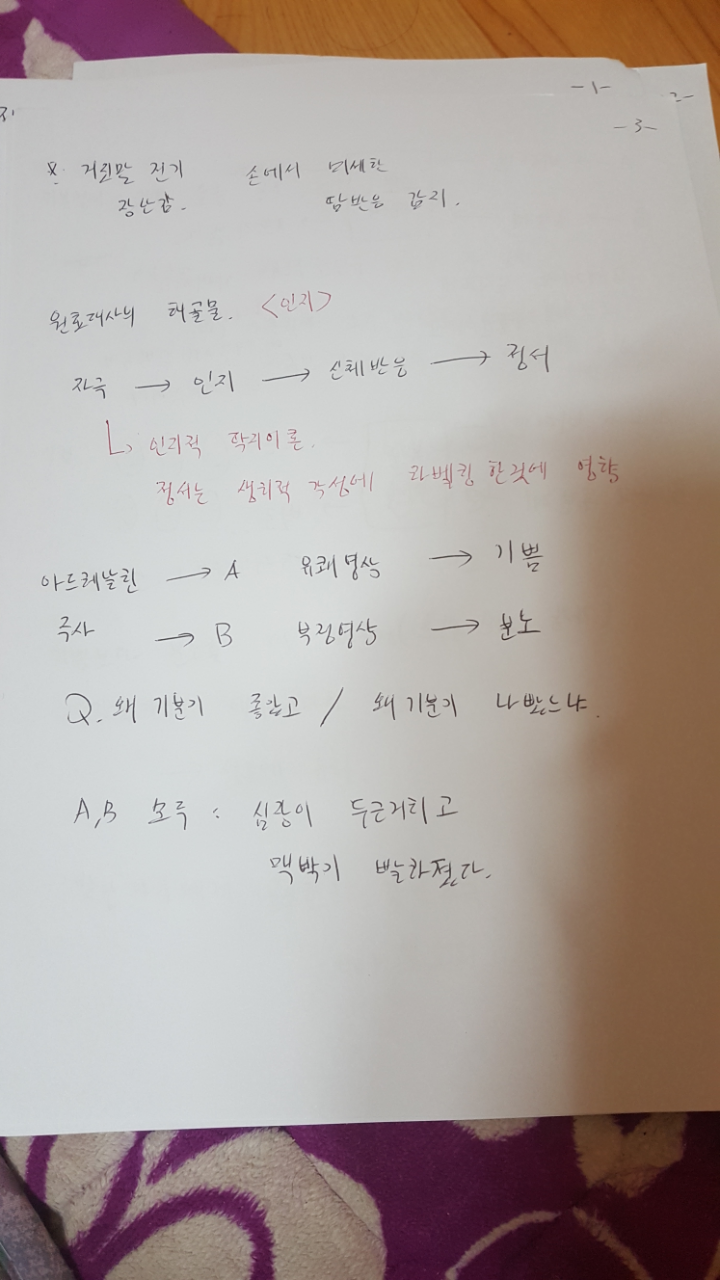 -1-
2-
-3-
※ 거짓말 전기 손에서 미세한
장난감. 땀반응 감지.
원효대사의 해골물. <인지>
자극 → 인지 → 신체반응 → 정서
↳ 인지적 평가이론.
정서는 생리적 각성에 라벨링 한것에 영향
아드레날린 → A 유쾌영상 → 기쁨
주사 → B 부정영상 → 분노
Q. 왜 기분이 좋았고 / 왜 기분이 나빴느냐.
A,B 모두 : 심장이 두근거리고
맥박이 빨라졌다.